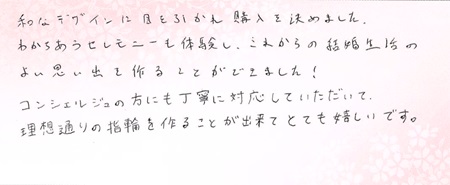 和なデザインに目を引かれ購入を決めました。
わかちあうセレモニーも体験し、これからの結婚生活の
よい思い出を作ることができました！
コンシェルジュの方にも丁寧に対応していただいて、
理想通りの指輪を作ることが出来てとても嬉しいです。